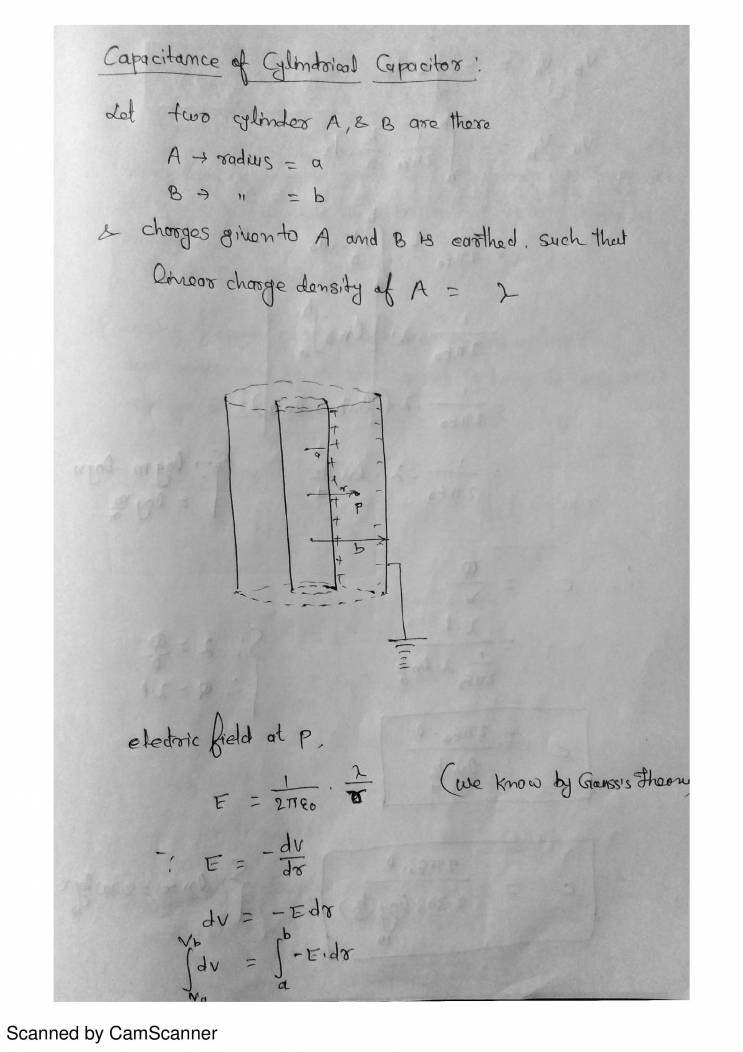 Capacitance of Cylindrical Capacitor :
Let two cylinder A, & B are there
A → radius = a
B → " = b
& charges given to A and B is earthed. such that
linear charge density of A = λ
a
r
P
b
electric field at P,
E = 1/2πε0 · λ/r (we know by Gauss's Theorem
∵ E = -dv/dr
dv = -Edr
∫_{Va}^{Vb} dv = ∫_a^b -E.dr
Scanned by CamScanner